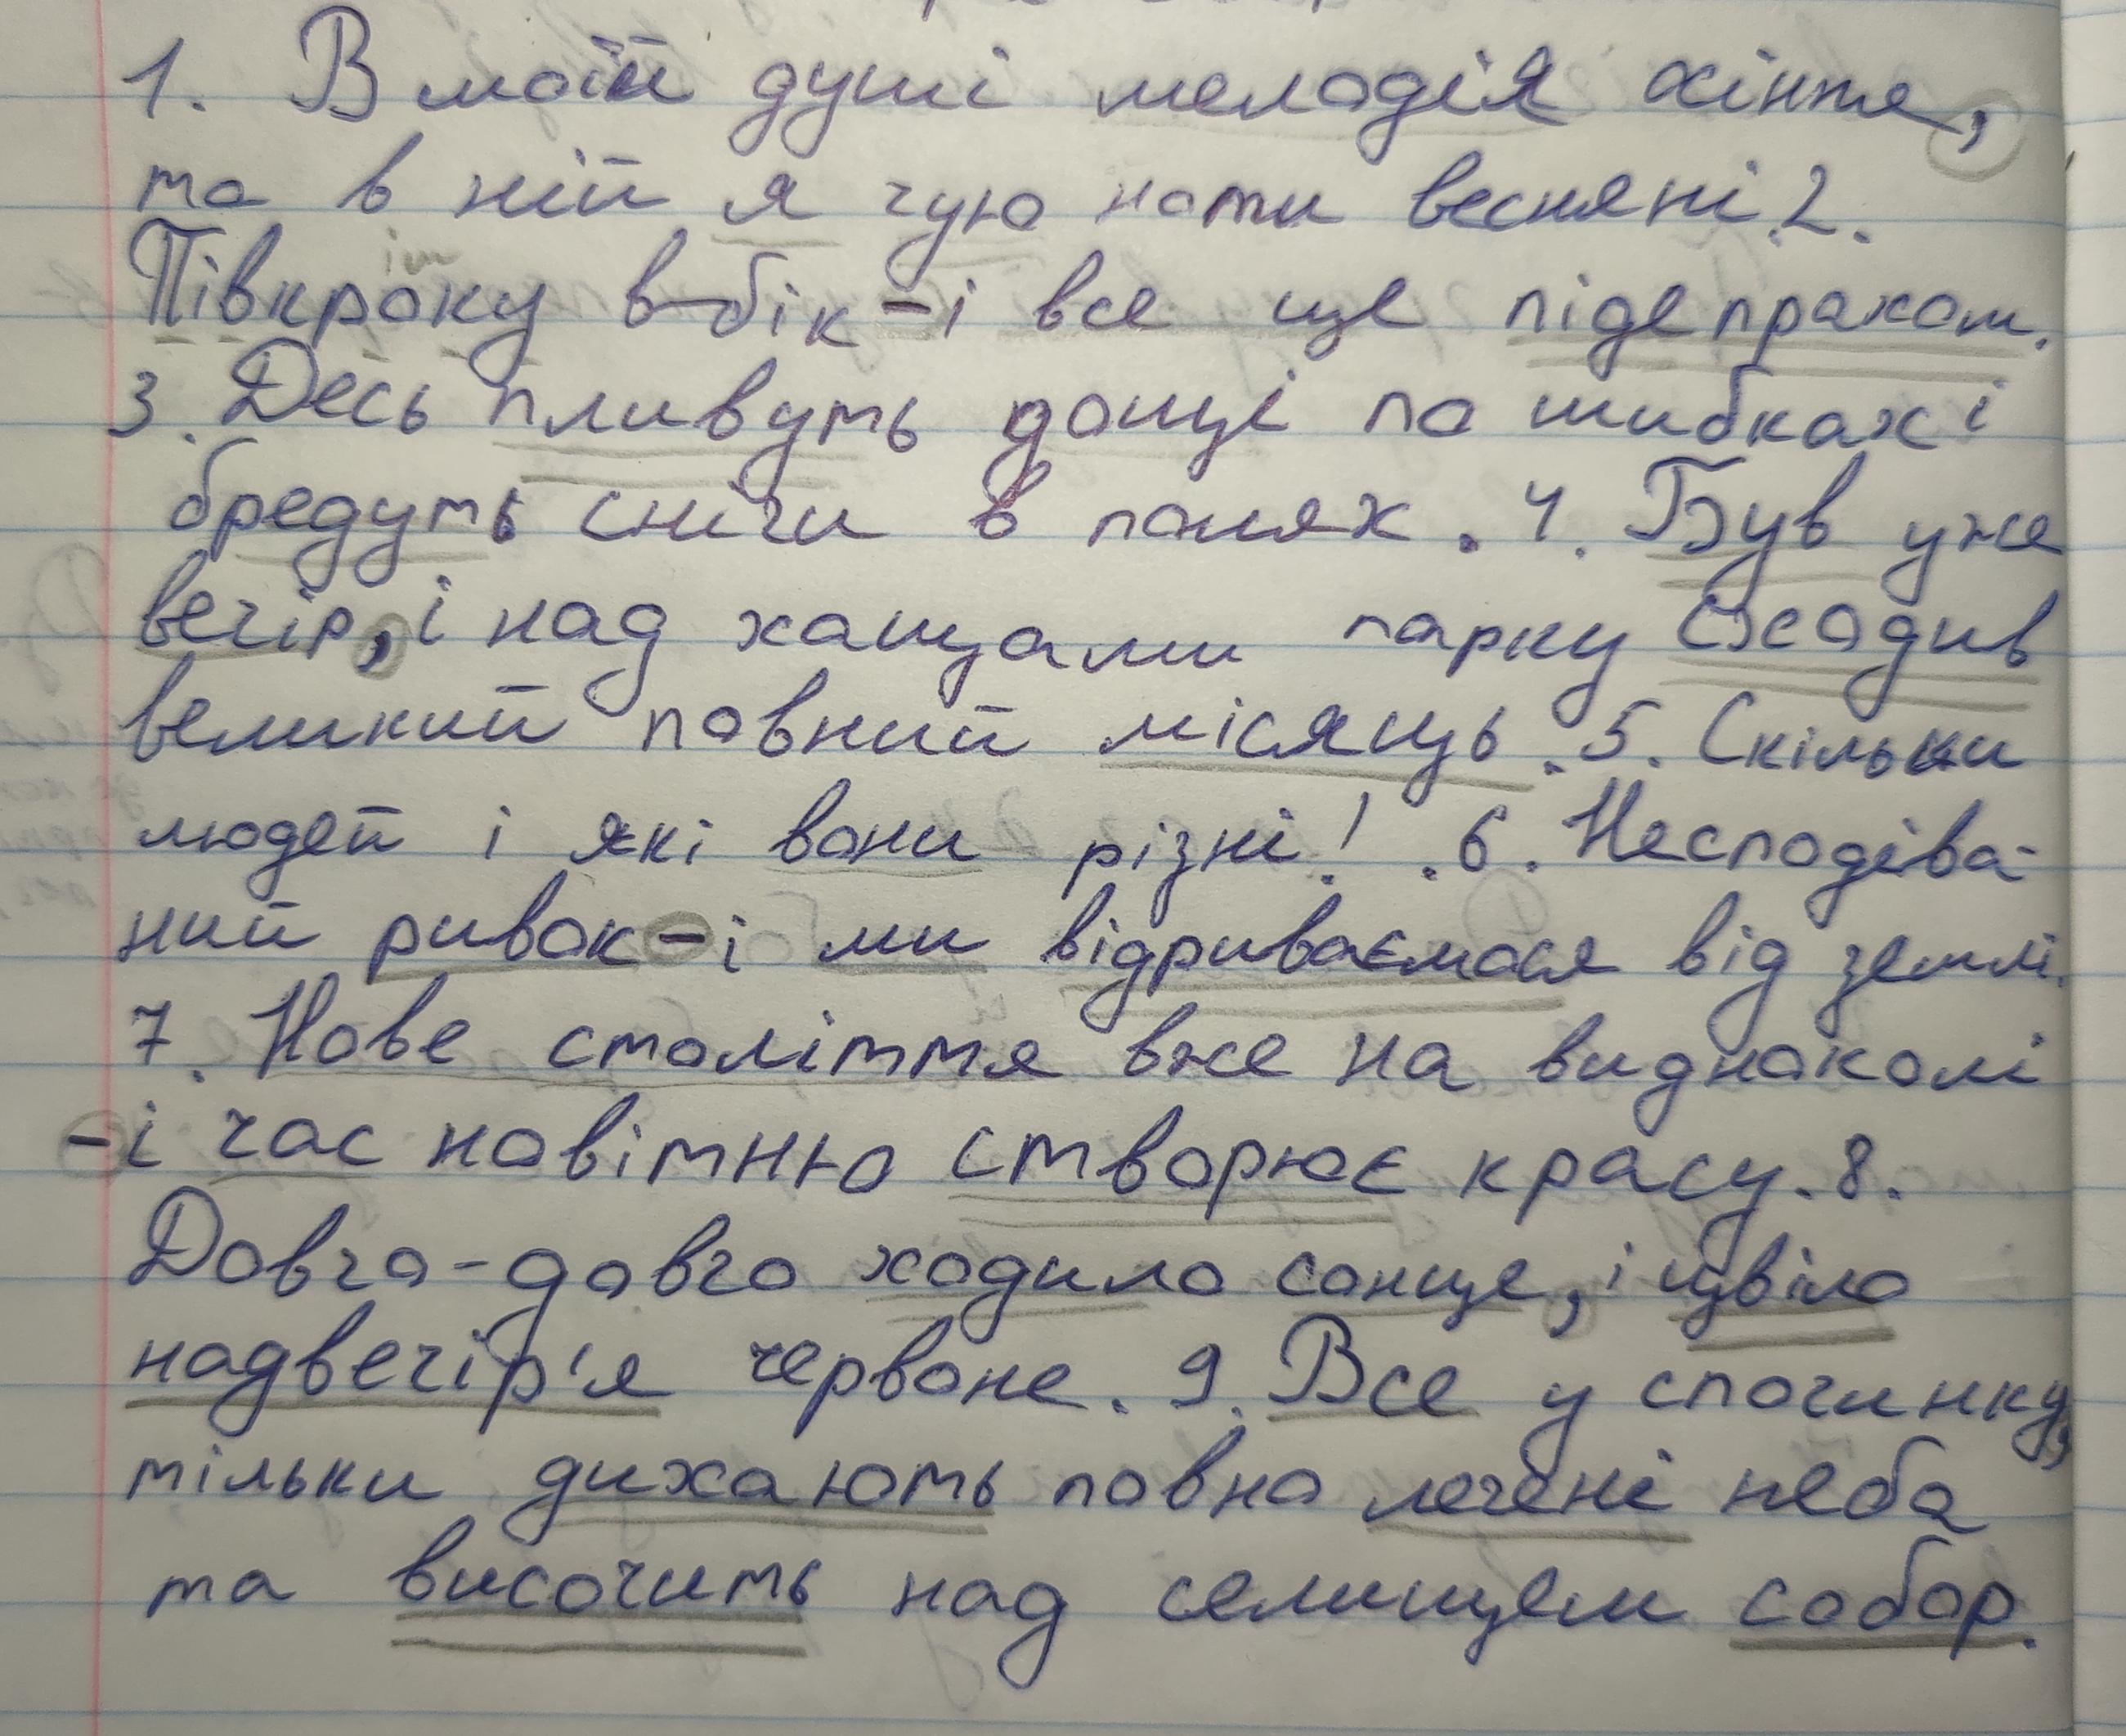 1. В моїй душі мелодія осіння,
та в ній я чую ноти весняні. 2.
Півкроку в бік - і все це піде прахом.
3. Десь пливуть дощі по шибках і
бредуть сніги в полях. 4. Був уже
вечір, і над хащами парку сходив
великий повний місяць. 5. Скільки
людей і які вони різні! .6. Несподіва-
ний ривок - і ми відриваємося від землі.
7. Нове століття вже на видноколі
- і час новітню створює красу. 8.
Довго-довго ходило сонце, і цвіло
надвечір'я червоне. 9. Все у спочинку,
тільки дихають повно легені неба
та височить над селищем собор.